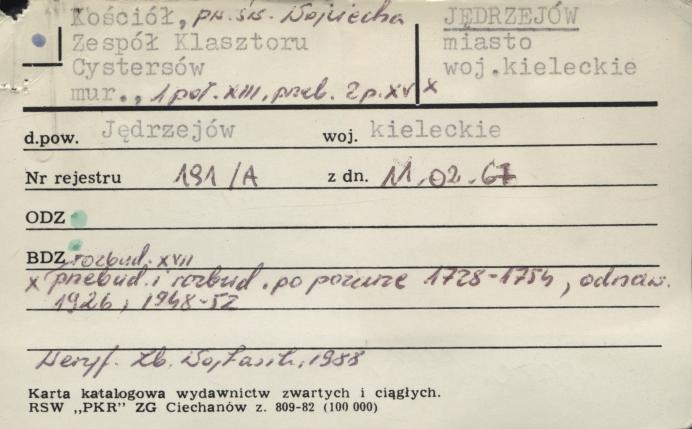 Kościół, p.w. św. Wojciecha
JĘDRZEJÓW
Zespół Klasztoru
miasto
Cystersów
woj.kieleckie
mur., 1 poł. XIII, przeb. 2 p. XV x
d.pow. Jędrzejów woj. kieleckie
Nr rejestru 191/A z dn. 11.02.67
ODZ
BDZ rozbud. XVII
x przebud. i rozbud. po pożarze 1728-1754, odnaw.
1926, 1948-52
Weryf. Zb. 1988
Karta katalogowa wydawnictw zwartych i ciągłych.
RSW „PKR" ZG Ciechanów z. 809-82 (100 000)